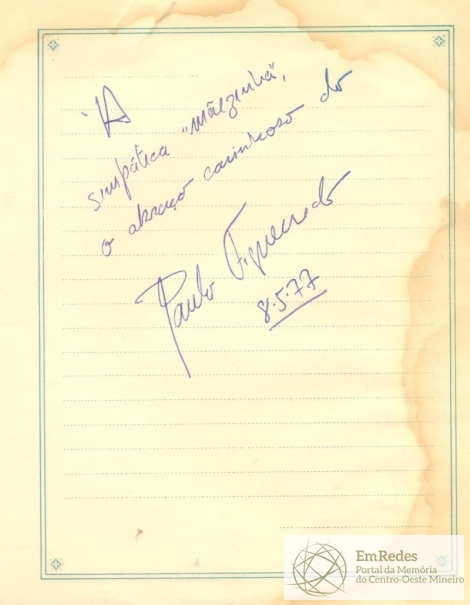 À
simpática "mãezinha",
o abraço carinhoso do
Paulo Figueiredo
8.5.77
EmRedes
Portal da Memória
do Centro-Oeste Mineiro